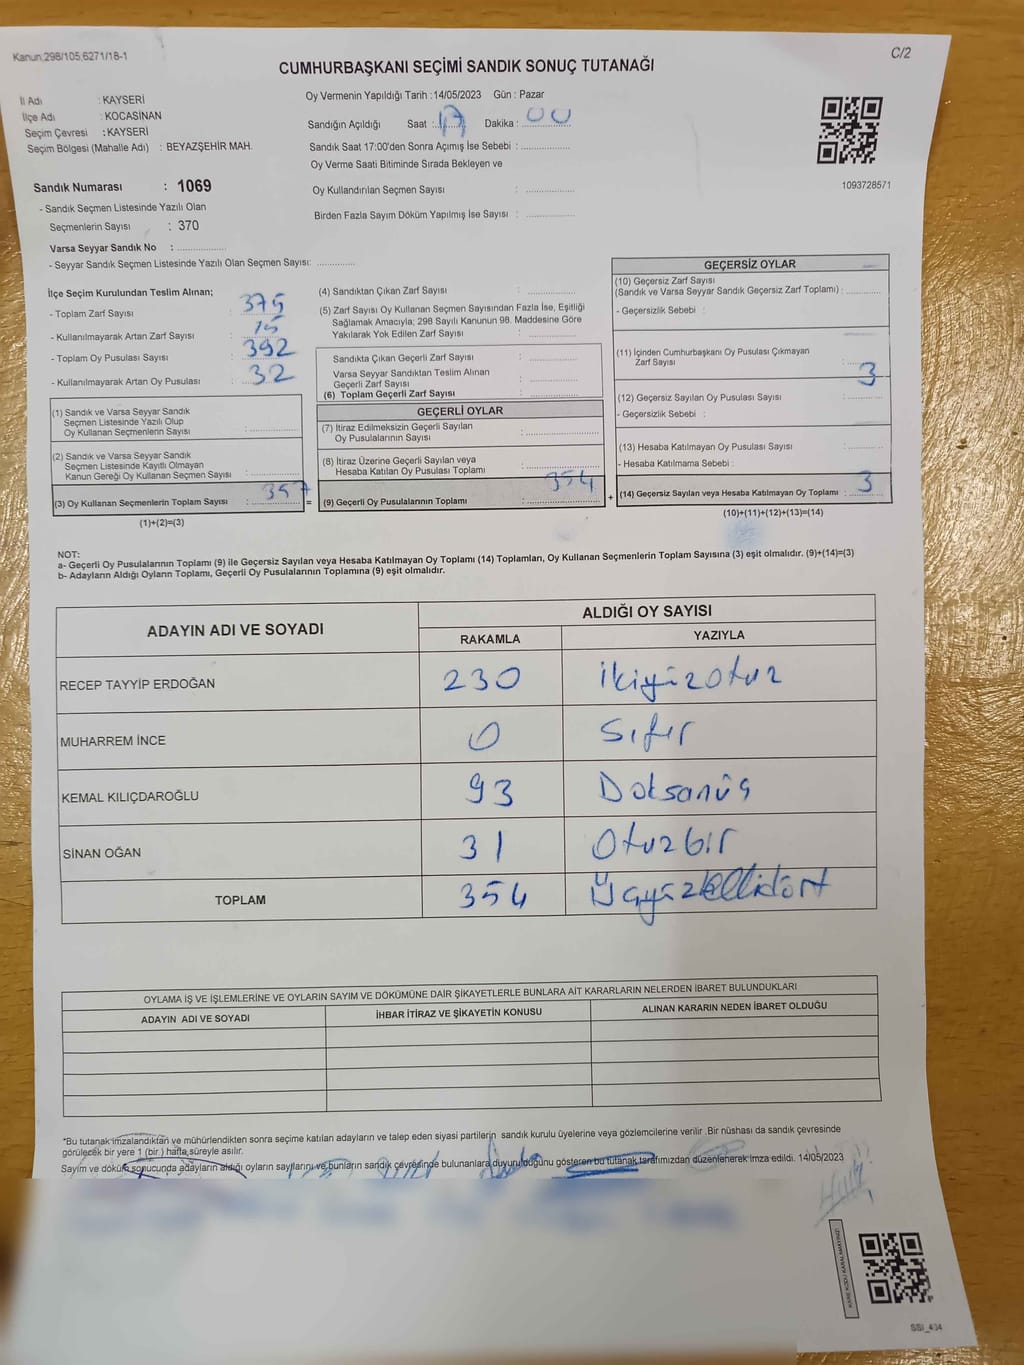 Kanun;298/105,6271/18-1
C/2
CUMHURBAŞKANI SEÇİMİ SANDIK SONUÇ TUTANAĞI
İl Adı : KAYSERİ
İlçe Adı : KOCASİNAN
Seçim Çevresi : KAYSERİ
Seçim Bölgesi (Mahalle Adı) : BEYAZŞEHİR MAH.
Oy Vermenin Yapıldığı Tarih :14/05/2023 Gün : Pazar
Sandığın Açıldığı Saat : 17 Dakika : 00
Sandık Saat 17:00'den Sonra Açımış İse Sebebi :
Oy Verme Saati Bitiminde Sırada Bekleyen ve
Oy Kullandırılan Seçmen Sayısı :
Birden Fazla Sayım Döküm Yapılmış İse Sayısı :
1093728571
Sandık Numarası : 1069
- Sandık Seçmen Listesinde Yazılı Olan
Seçmenlerin Sayısı : 370
Varsa Seyyar Sandık No :
- Seyyar Sandık Seçmen Listesinde Yazılı Olan Seçmen Sayısı:
İlçe Seçim Kurulundan Teslim Alınan;
- Toplam Zarf Sayısı : 375
- Kullanılmayarak Artan Zarf Sayısı : 15
- Toplam Oy Pusulası Sayısı : 392
- Kullanılmayarak Artan Oy Pusulası : 32
(1) Sandık ve Varsa Seyyar Sandık
Seçmen Listesinde Yazılı Olup
Oy Kullanan Seçmenlerin Sayısı :
(2) Sandık ve Varsa Seyyar Sandık
Seçmen Listesinde Kayıtlı Olmayan
Kanun Gereği Oy Kullanan Seçmen Sayısı :
(3) Oy Kullanan Seçmenlerin Toplam Sayısı : 357 =
(1)+(2)=(3)
(4) Sandıktan Çıkan Zarf Sayısı :
(5) Zarf Sayısı Oy Kullanan Seçmen Sayısından Fazla İse, Eşitliği
Sağlamak Amacıyla; 298 Sayılı Kanunun 98. Maddesine Göre
Yakılarak Yok Edilen Zarf Sayısı :
Sandıkta Çıkan Geçerli Zarf Sayısı :
Varsa Seyyar Sandıktan Teslim Alınan
Geçerli Zarf Sayısı :
(6) Toplam Geçerli Zarf Sayısı :
GEÇERLİ OYLAR
(7) İtiraz Edilmeksizin Geçerli Sayılan
Oy Pusulalarının Sayısı :
(8) İtiraz Üzerine Geçerli Sayılan veya
Hesaba Katılan Oy Pusulası Toplamı :
(9) Geçerli Oy Pusulalarının Toplamı : 354 +
GEÇERSİZ OYLAR
(10) Geçersiz Zarf Sayısı
(Sandık ve Varsa Seyyar Sandık Geçersiz Zarf Toplamı) :
- Geçersizlik Sebebi :
(11) İçinden Cumhurbaşkanı Oy Pusulası Çıkmayan
Zarf Sayısı : 3
(12) Geçersiz Sayılan Oy Pusulası Sayısı :
- Geçersizlik Sebebi :
(13) Hesaba Katılmayan Oy Pusulası Sayısı :
- Hesaba Katılmama Sebebi :
(14) Geçersiz Sayılan veya Hesaba Katılmayan Oy Toplamı : 3
(10)+(11)+(12)+(13)=(14)
NOT:
a- Geçerli Oy Pusulalarının Toplamı (9) ile Geçersiz Sayılan veya Hesaba Katılmayan Oy Toplamı (14) Toplamları, Oy Kullanan Seçmenlerin Toplam Sayısına (3) eşit olmalıdır. (9)+(14)=(3)
b- Adayların Aldığı Oyların Toplamı, Geçerli Oy Pusulalarının Toplamına (9) eşit olmalıdır.
ADAYIN ADI VE SOYADI
ALDIĞI OY SAYISI
RAKAMLA YAZIYLA
RECEP TAYYİP ERDOĞAN 230 ikiyüzotuz
MUHARREM İNCE 0 Sıfır
KEMAL KILIÇDAROĞLU 93 Doksanüç
SİNAN OĞAN 31 Otuzbir
TOPLAM 354 Üçyüzellidört
OYLAMA İŞ VE İŞLEMLERİNE VE OYLARIN SAYIM VE DÖKÜMÜNE DAİR ŞİKAYETLERLE BUNLARA AİT KARARLARIN NELERDEN İBARET BULUNDUKLARI
ADAYIN ADI VE SOYADI İHBAR İTİRAZ VE ŞİKAYETİN KONUSU ALINAN KARARIN NEDEN İBARET OLDUĞU
*Bu tutanak imzalandıktan ve mühürlendikten sonra seçime katılan adayların ve talep eden siyasi partilerin sandık kurulu üyelerine veya gözlemcilerine verilir .Bir nüshası da sandık çevresinde
görülecek bir yere 1 (bir ) hafta süreyle asılır.
Sayım ve döküm sonucunda adayların aldığı oyların sayılarını ve bunların sandık çevresinde bulunanlara duyurulduğunu gösteren bu tutanak tarafımızdan düzenlenerek imza edildi. 14/05/2023
SSI_434